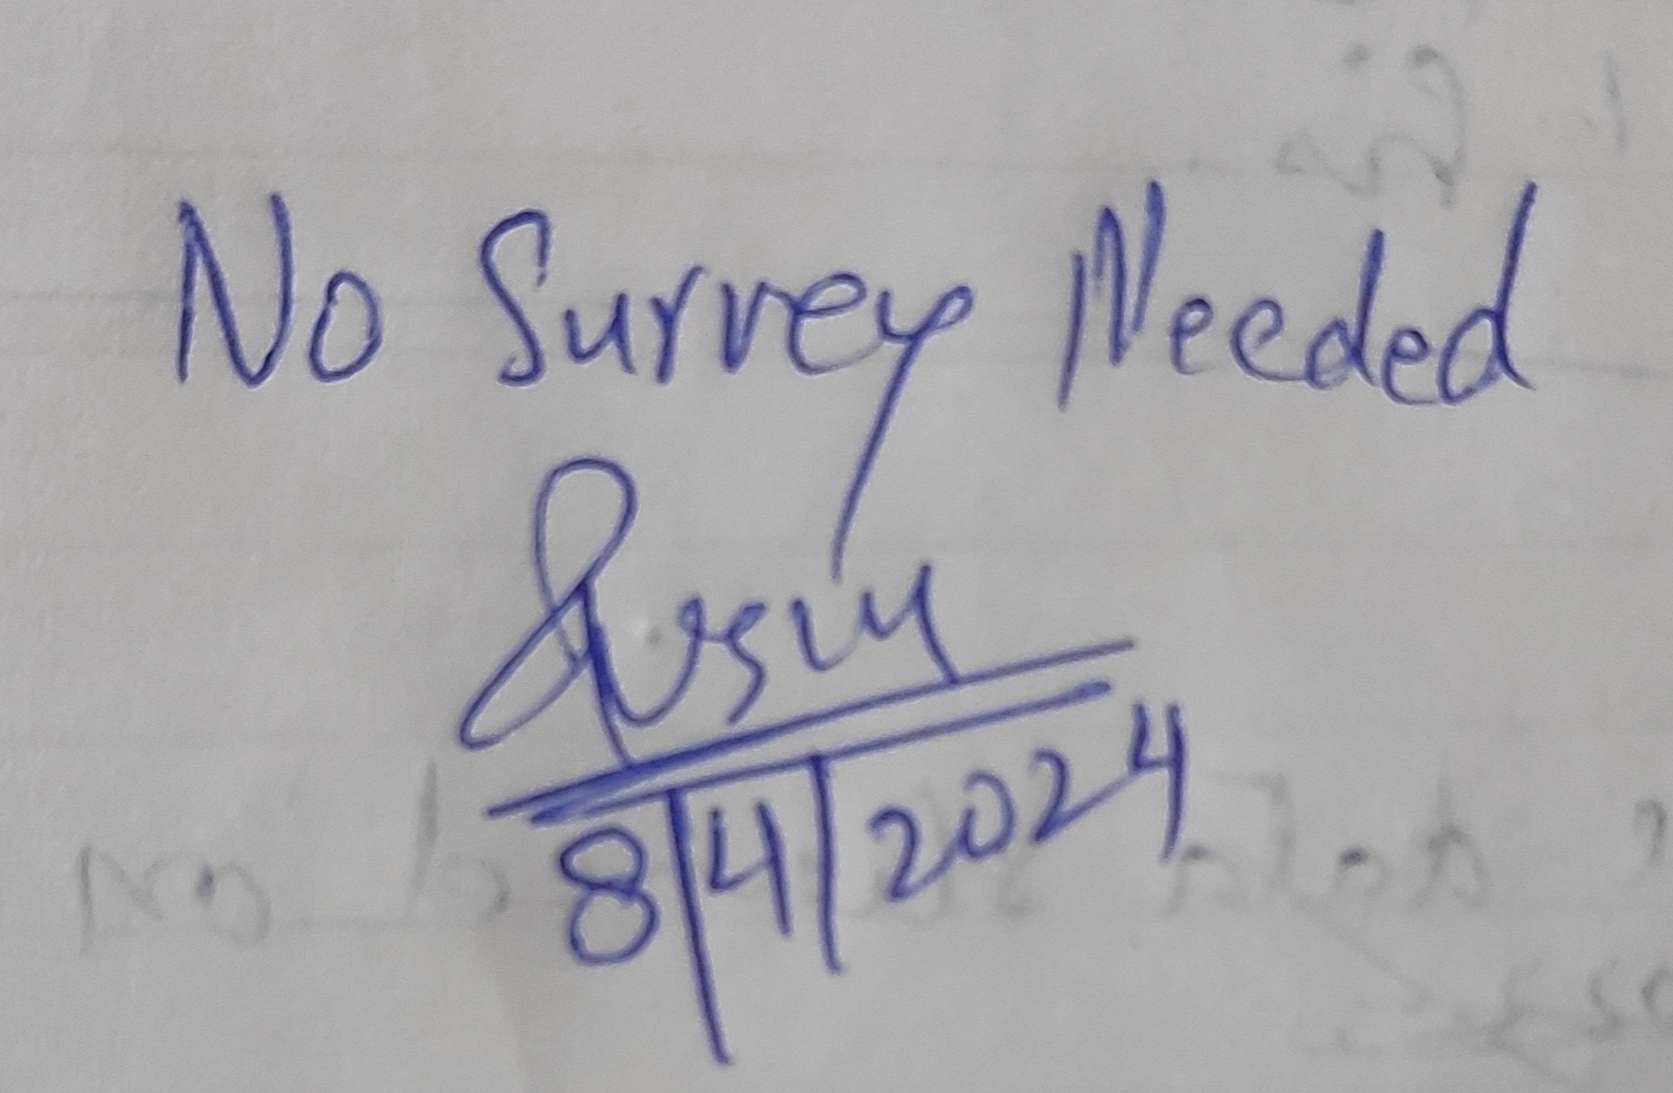 No Survey Needed
8/4/2024